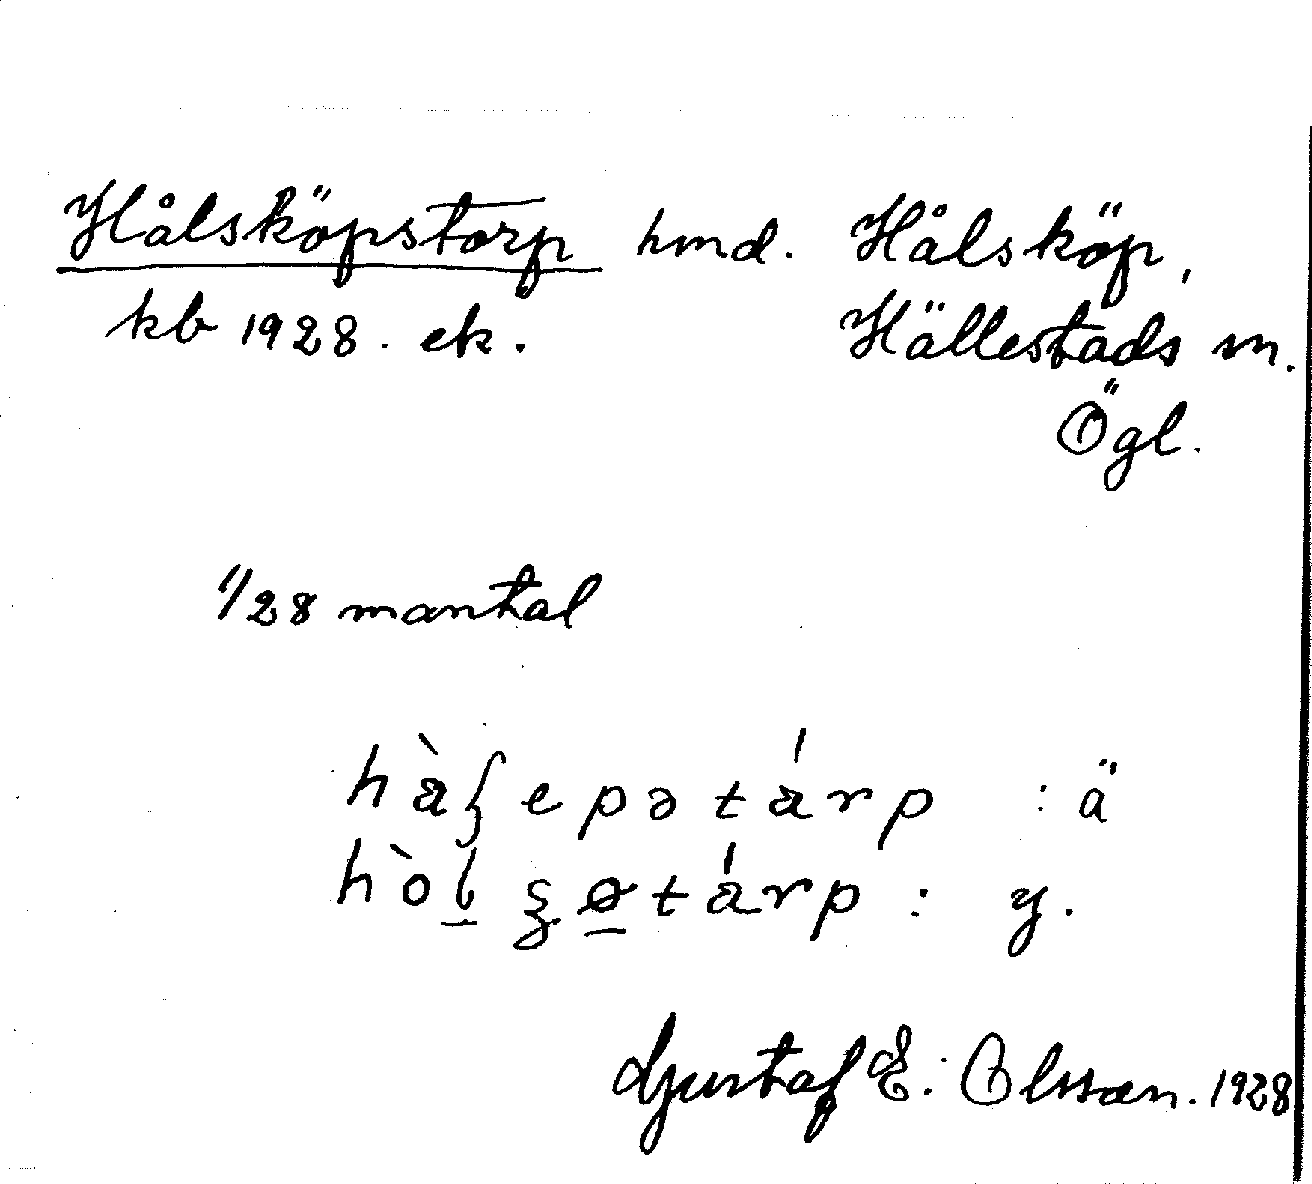 Hålsköpstorp hmd. Hålsköp,
kb 1928. ek. Hällestads sn.
Ögl.
1/28 mantal
: ä
: y.
Gustaf E. Olsson. 1928